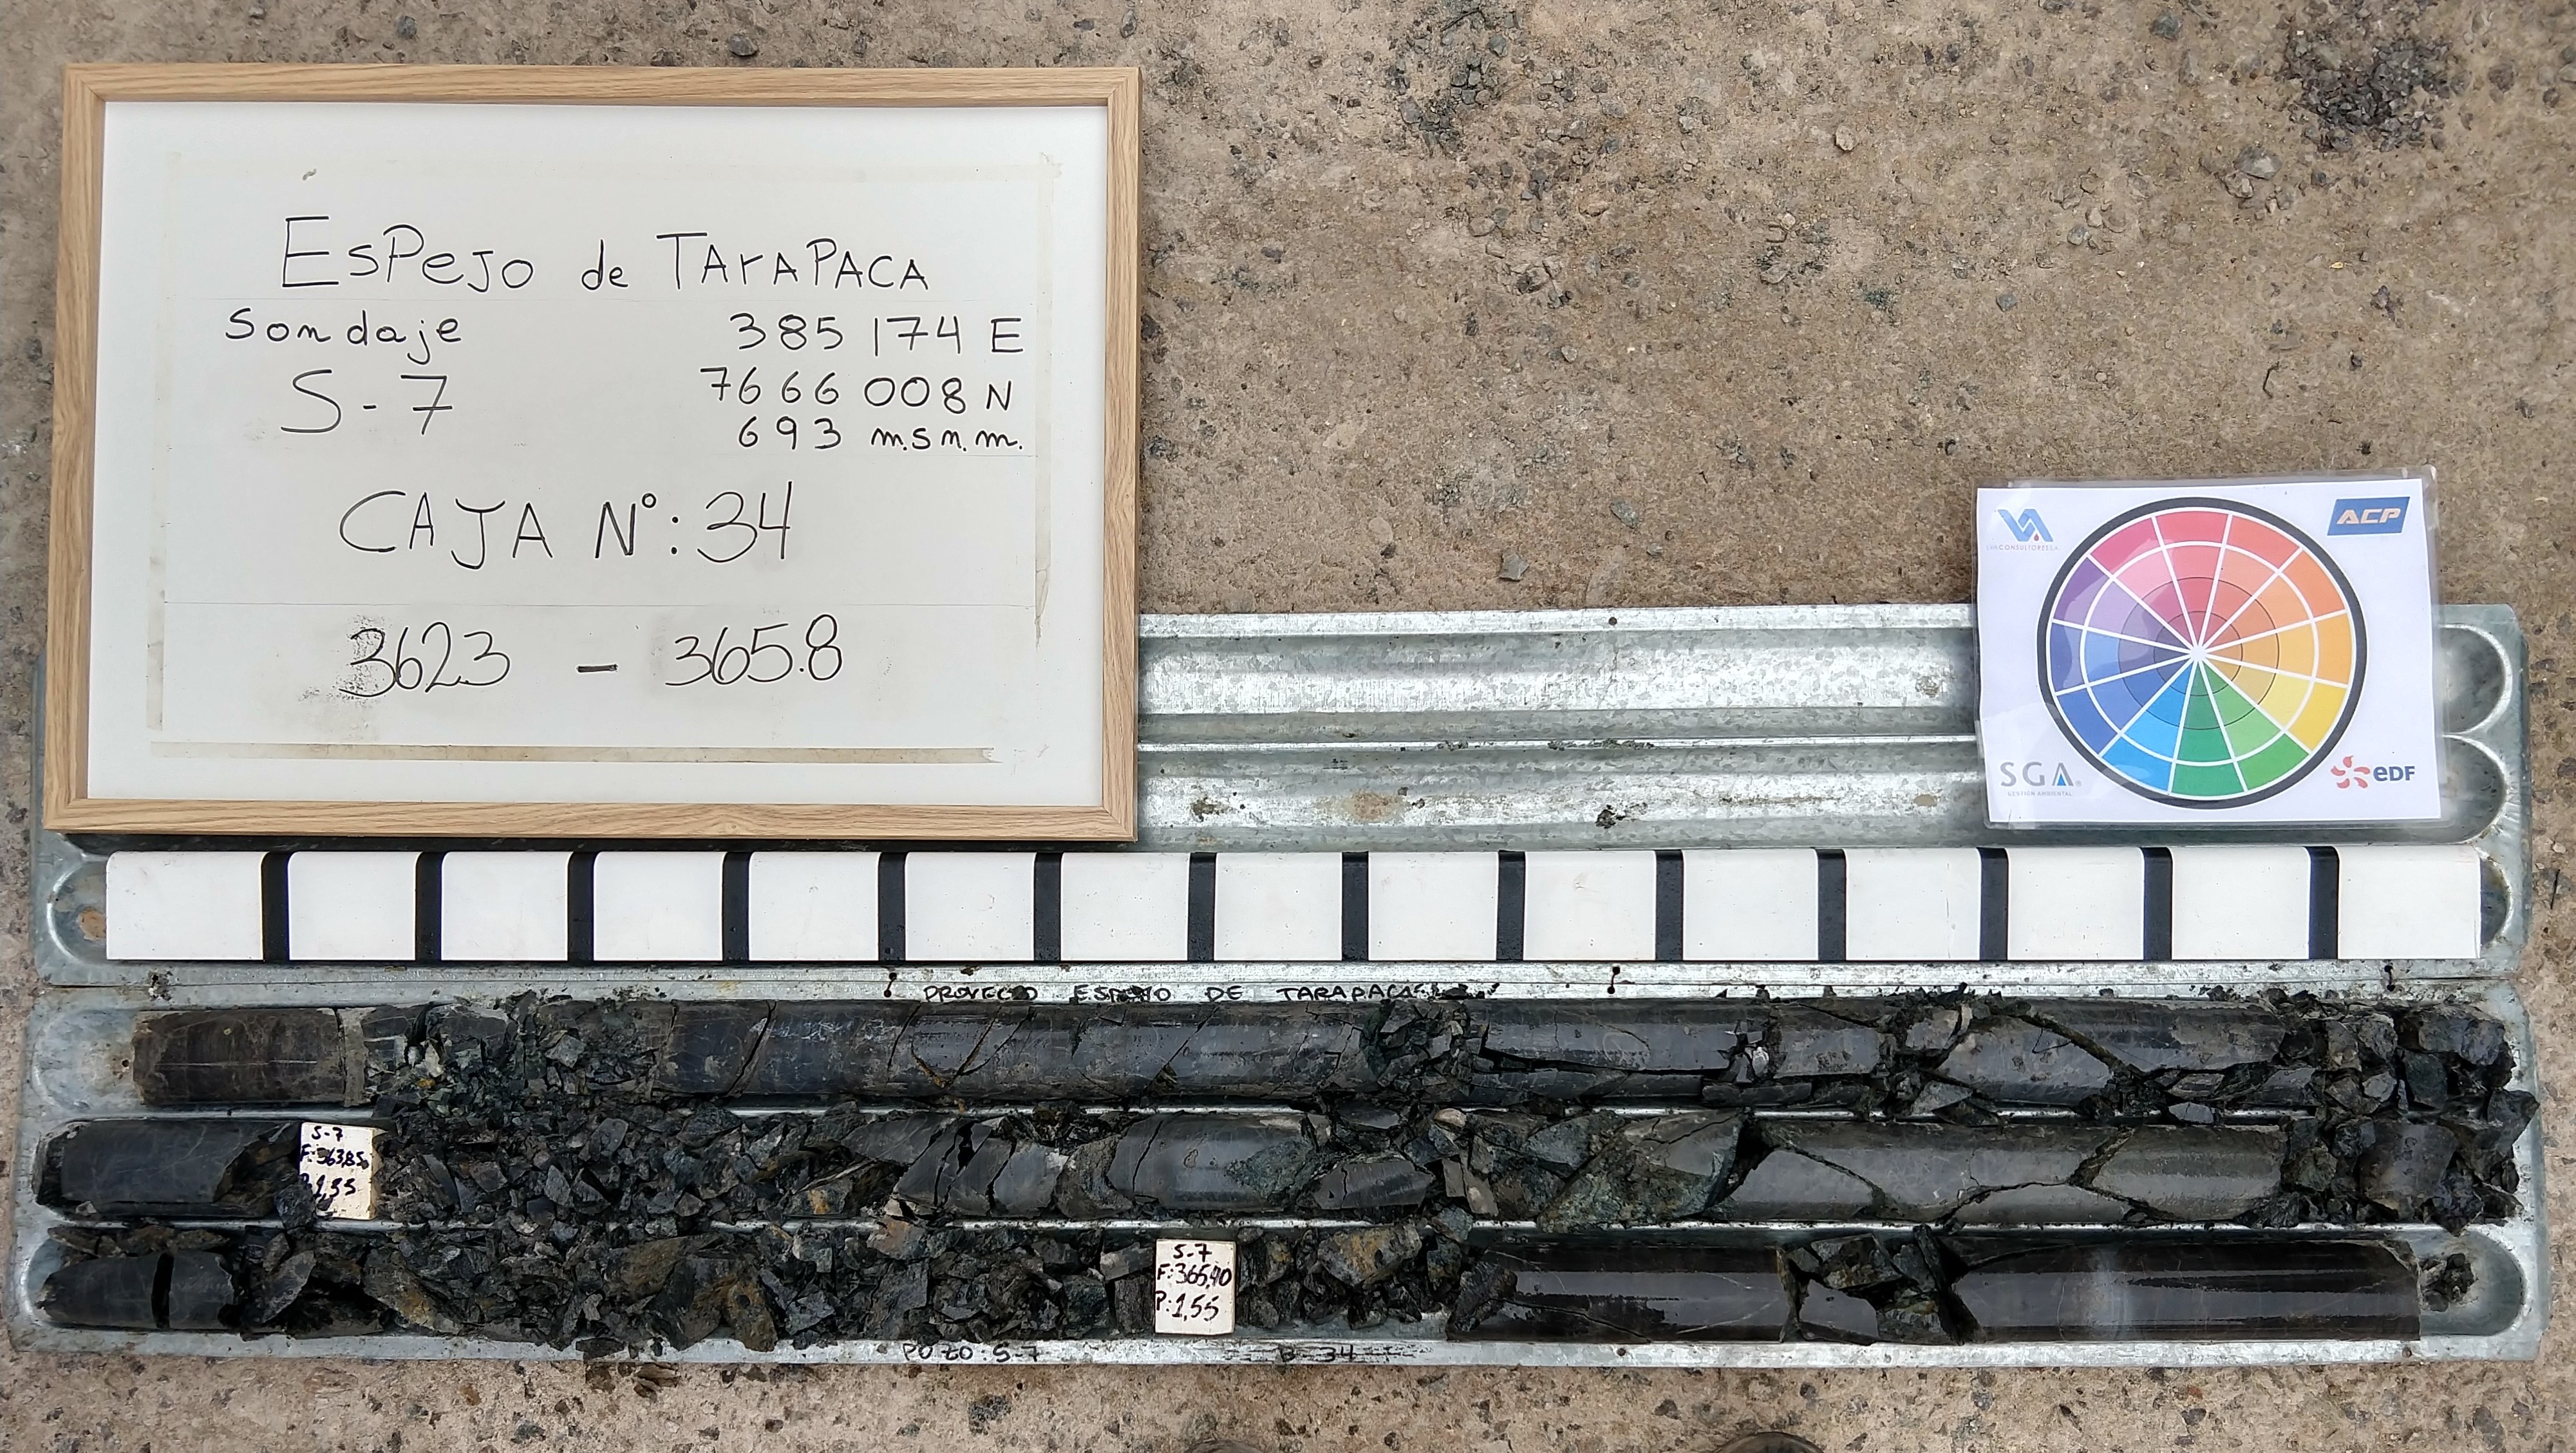 EsPeJo de TArAPACA
Sondaje 385 174 E
S-7 7666 008 N
693 m.s.n.m.
CAJA N°: 34
3623 - 365.8
VACONSULTORES S.A.
ACP
SGA
GESTIÓN AMBIENTAL
eDF
PROYECTO ESPEJO DE TARAPACA
S-7
F: 363,85
P: 1,55
S-7
F: 365,40
P: 1,55
POZO: S-7 34